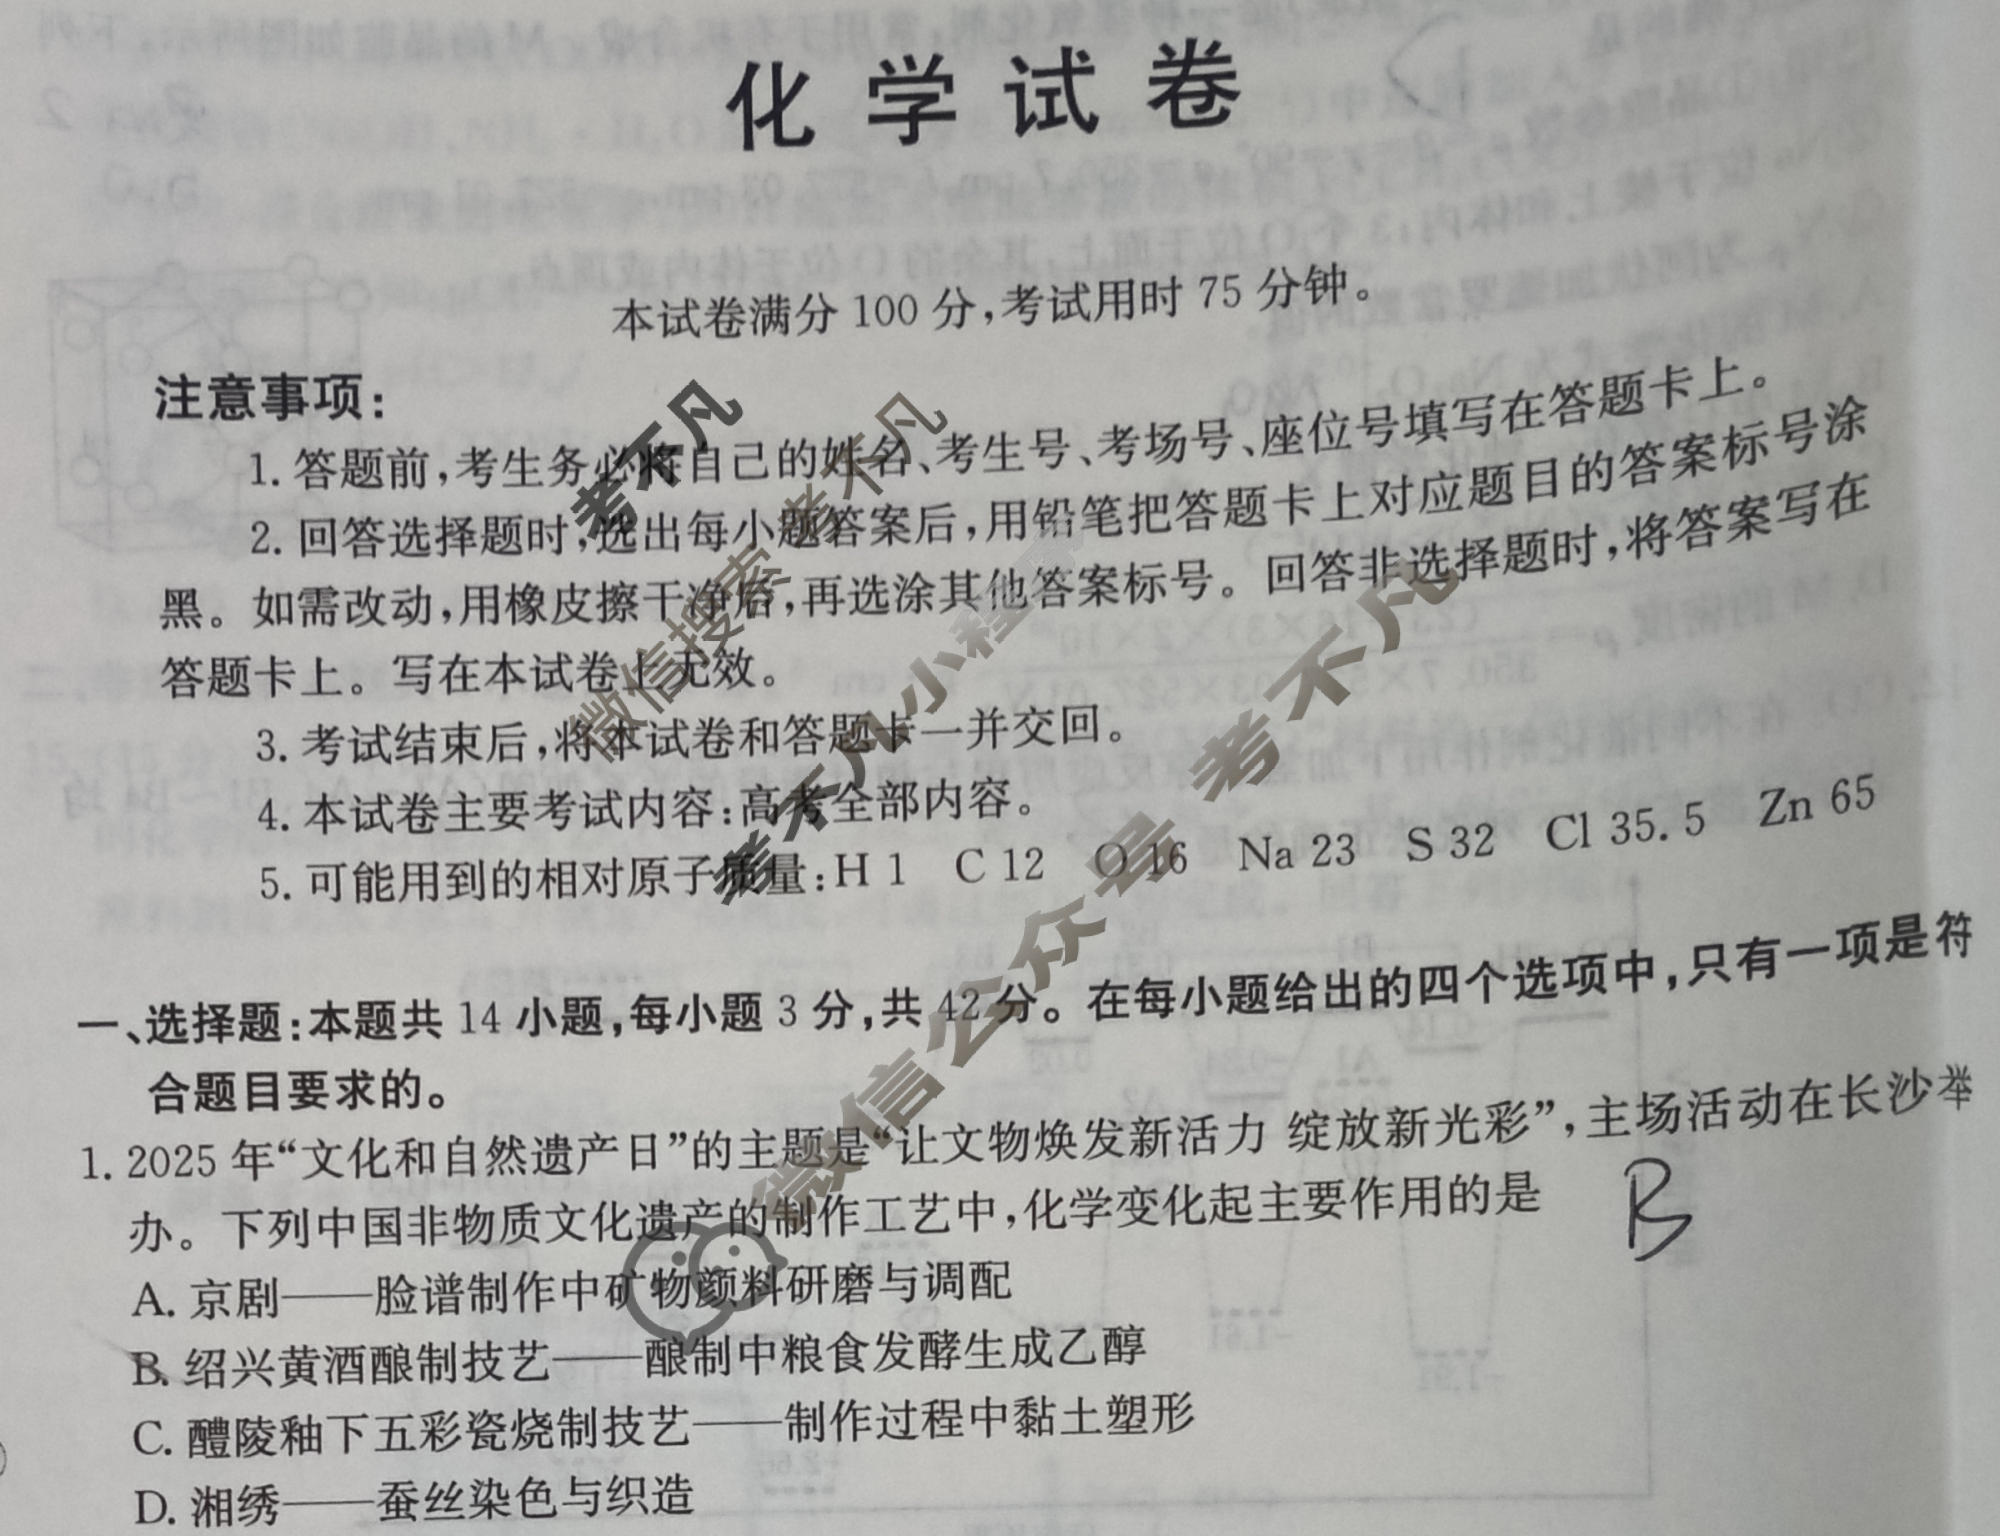 化学试卷
本试卷满分 100 分,考试用时 75 分钟。
注意事项:
1. 答题前,考生务必将自己的姓名、考生号、考场号、座位号填写在答题卡上。
2. 回答选择题时,选出每小题答案后,用铅笔把答题卡上对应题目的答案标号涂
黑。如需改动,用橡皮擦干净后,再选涂其他答案标号。回答非选择题时,将答案写在
答题卡上。写在本试卷上无效。
3. 考试结束后,将本试卷和答题卡一并交回。
4. 本试卷主要考试内容:高考全部内容。
5. 可能用到的相对原子质量:H 1 C 12 O 16 Na 23 S 32 Cl 35.5 Zn 65
一、选择题:本题共 14 小题,每小题 3 分,共 42 分。在每小题给出的四个选项中,只有一项是符
合题目要求的。
1. 2025 年“文化和自然遗产日”的主题是“让文物焕发新活力 绽放新光彩”,主场活动在长沙举
办。下列中国非物质文化遗产的制作工艺中,化学变化起主要作用的是
B
A. 京剧——脸谱制作中矿物颜料研磨与调配
B. 绍兴黄酒酿制技艺——酿制中粮食发酵生成乙醇
C. 醴陵釉下五彩瓷烧制技艺——制作过程中黏土塑形
D. 湘绣——蚕丝染色与织造
考不凡
微信搜索 考不凡
考不凡小程序
微信公众号 考不凡